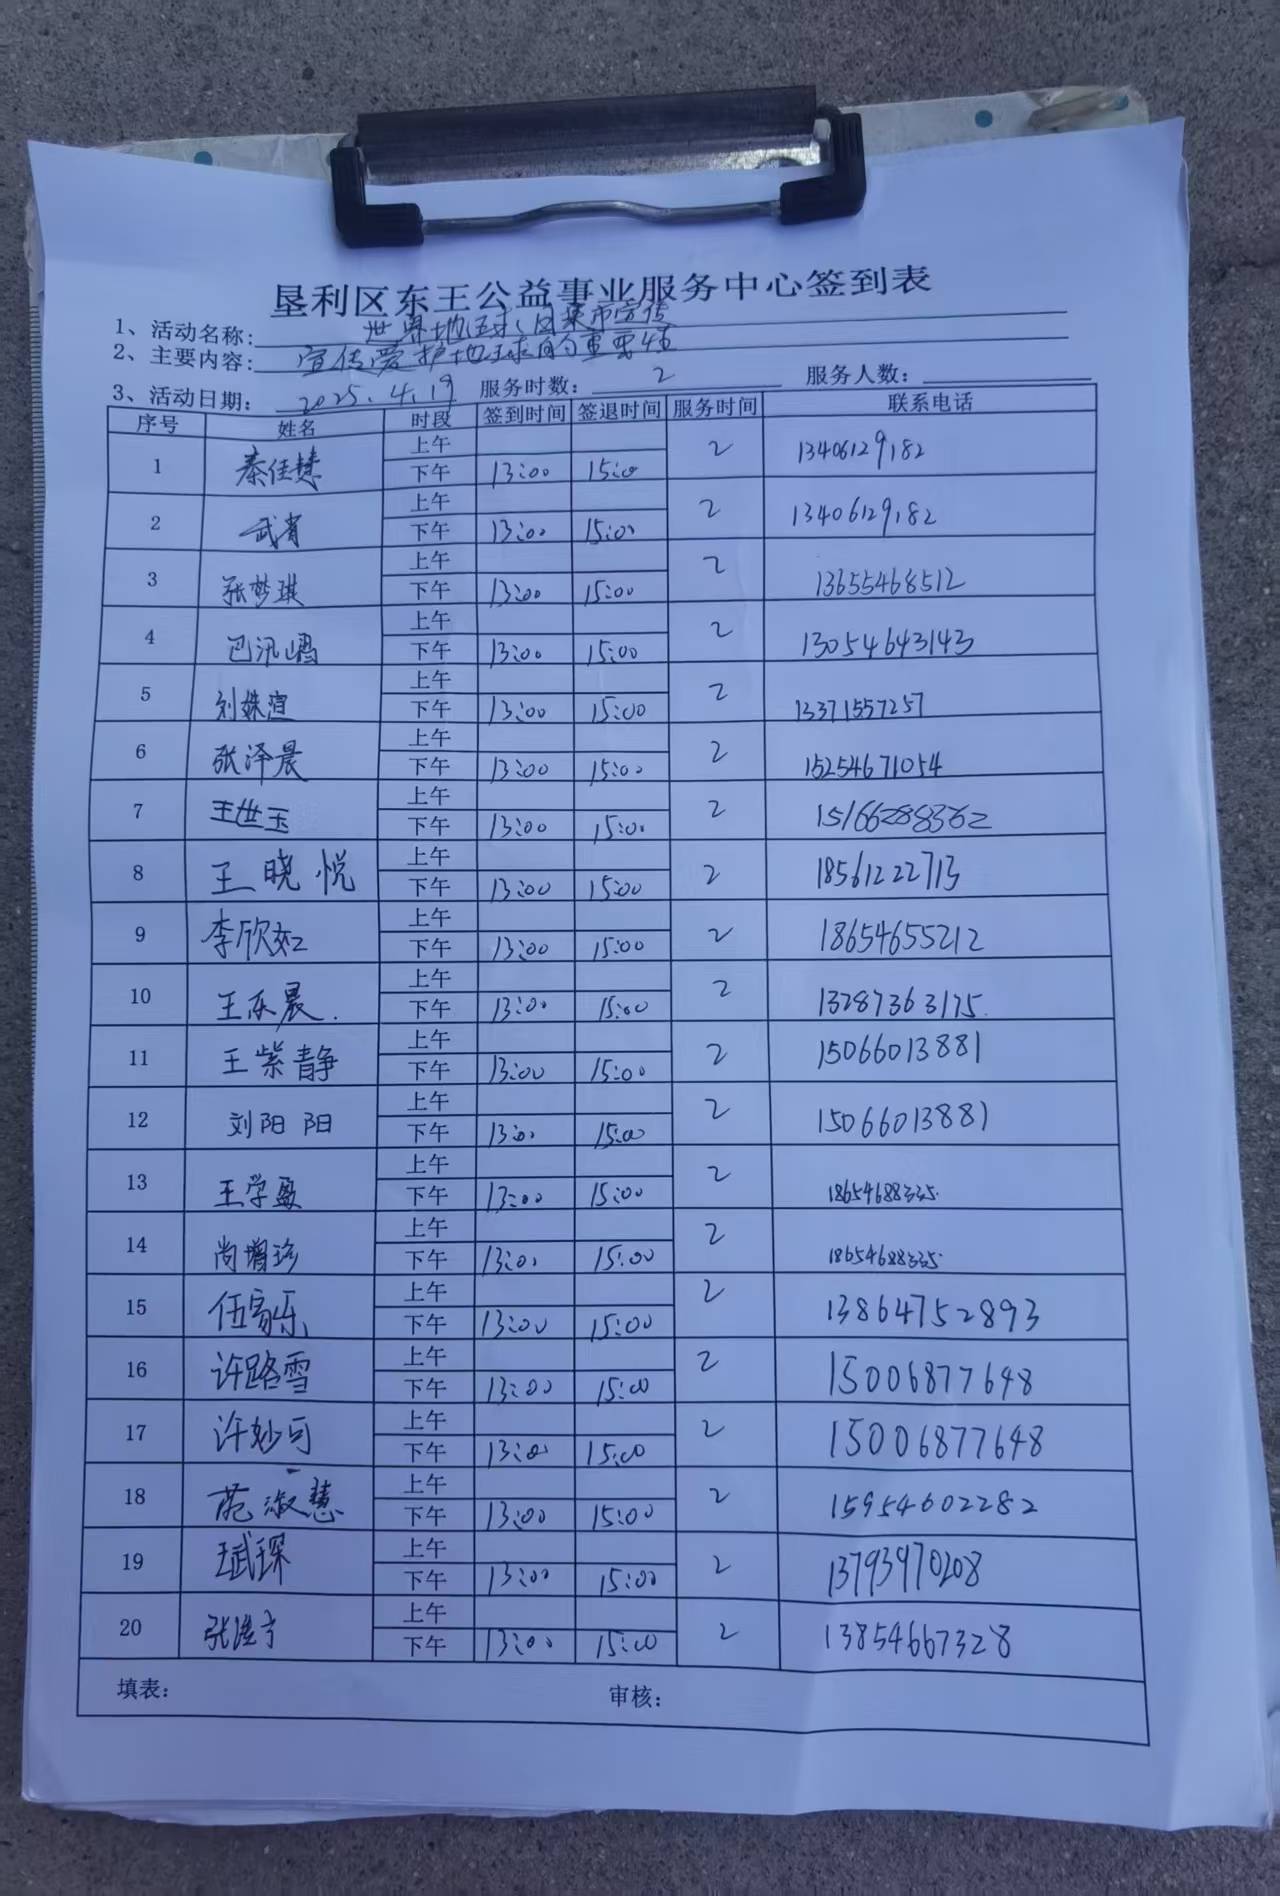 垦利区东王公益事业服务中心签到表
1、活动名称: 世界地球日集市宣传
2、主要内容: 宣传爱护地球的重要性
3、活动日期: 2025.4.19 服务时数: 2 服务人数:
序号 姓名 时段 签到时间 签退时间 服务时间 联系电话
1 秦佳慧 上午 下午 13:00 15:00 2 13406129182
2 武肖 上午 下午 13:00 15:00 2 13406129182
3 张梦琪 上午 下午 13:00 15:00 2 13655468512
4 巴汛 上午 下午 13:00 15:00 2 13054643143
5 刘姝渲 上午 下午 13:00 15:00 2 13371557257
6 张泽晨 上午 下午 13:00 15:00 2 15254671054
7 王世玉 上午 下午 13:00 15:00 2 15166288362
8 王晓悦 上午 下午 13:00 15:00 2 18561222713
9 李欣如 上午 下午 13:00 15:00 2 18654655212
10 王东晨. 上午 下午 13:00 15:00 2 13287363175.
11 王紫静 上午 下午 13:00 15:00 2 15066013881
12 刘阳阳 上午 下午 13:00 15:00 2 15066013881
13 王学盈 上午 下午 13:00 15:00 2 18654688335.
14 尚增珍 上午 下午 13:00 15:00 2 18654688335.
15 伍家乐 上午 下午 13:00 15:00 2 13864752893
16 许路雪 上午 下午 13:00 15:00 2 15006877648
17 许妙可 上午 下午 13:00 15:00 2 15006877648
18 范淑慧 上午 下午 13:00 15:00 2 15954602282
19 王斌琛 上午 下午 13:00 15:00 2 13793970208
20 张 上午 下午 13:00 15:00 2 13854667328
填表: 审核: